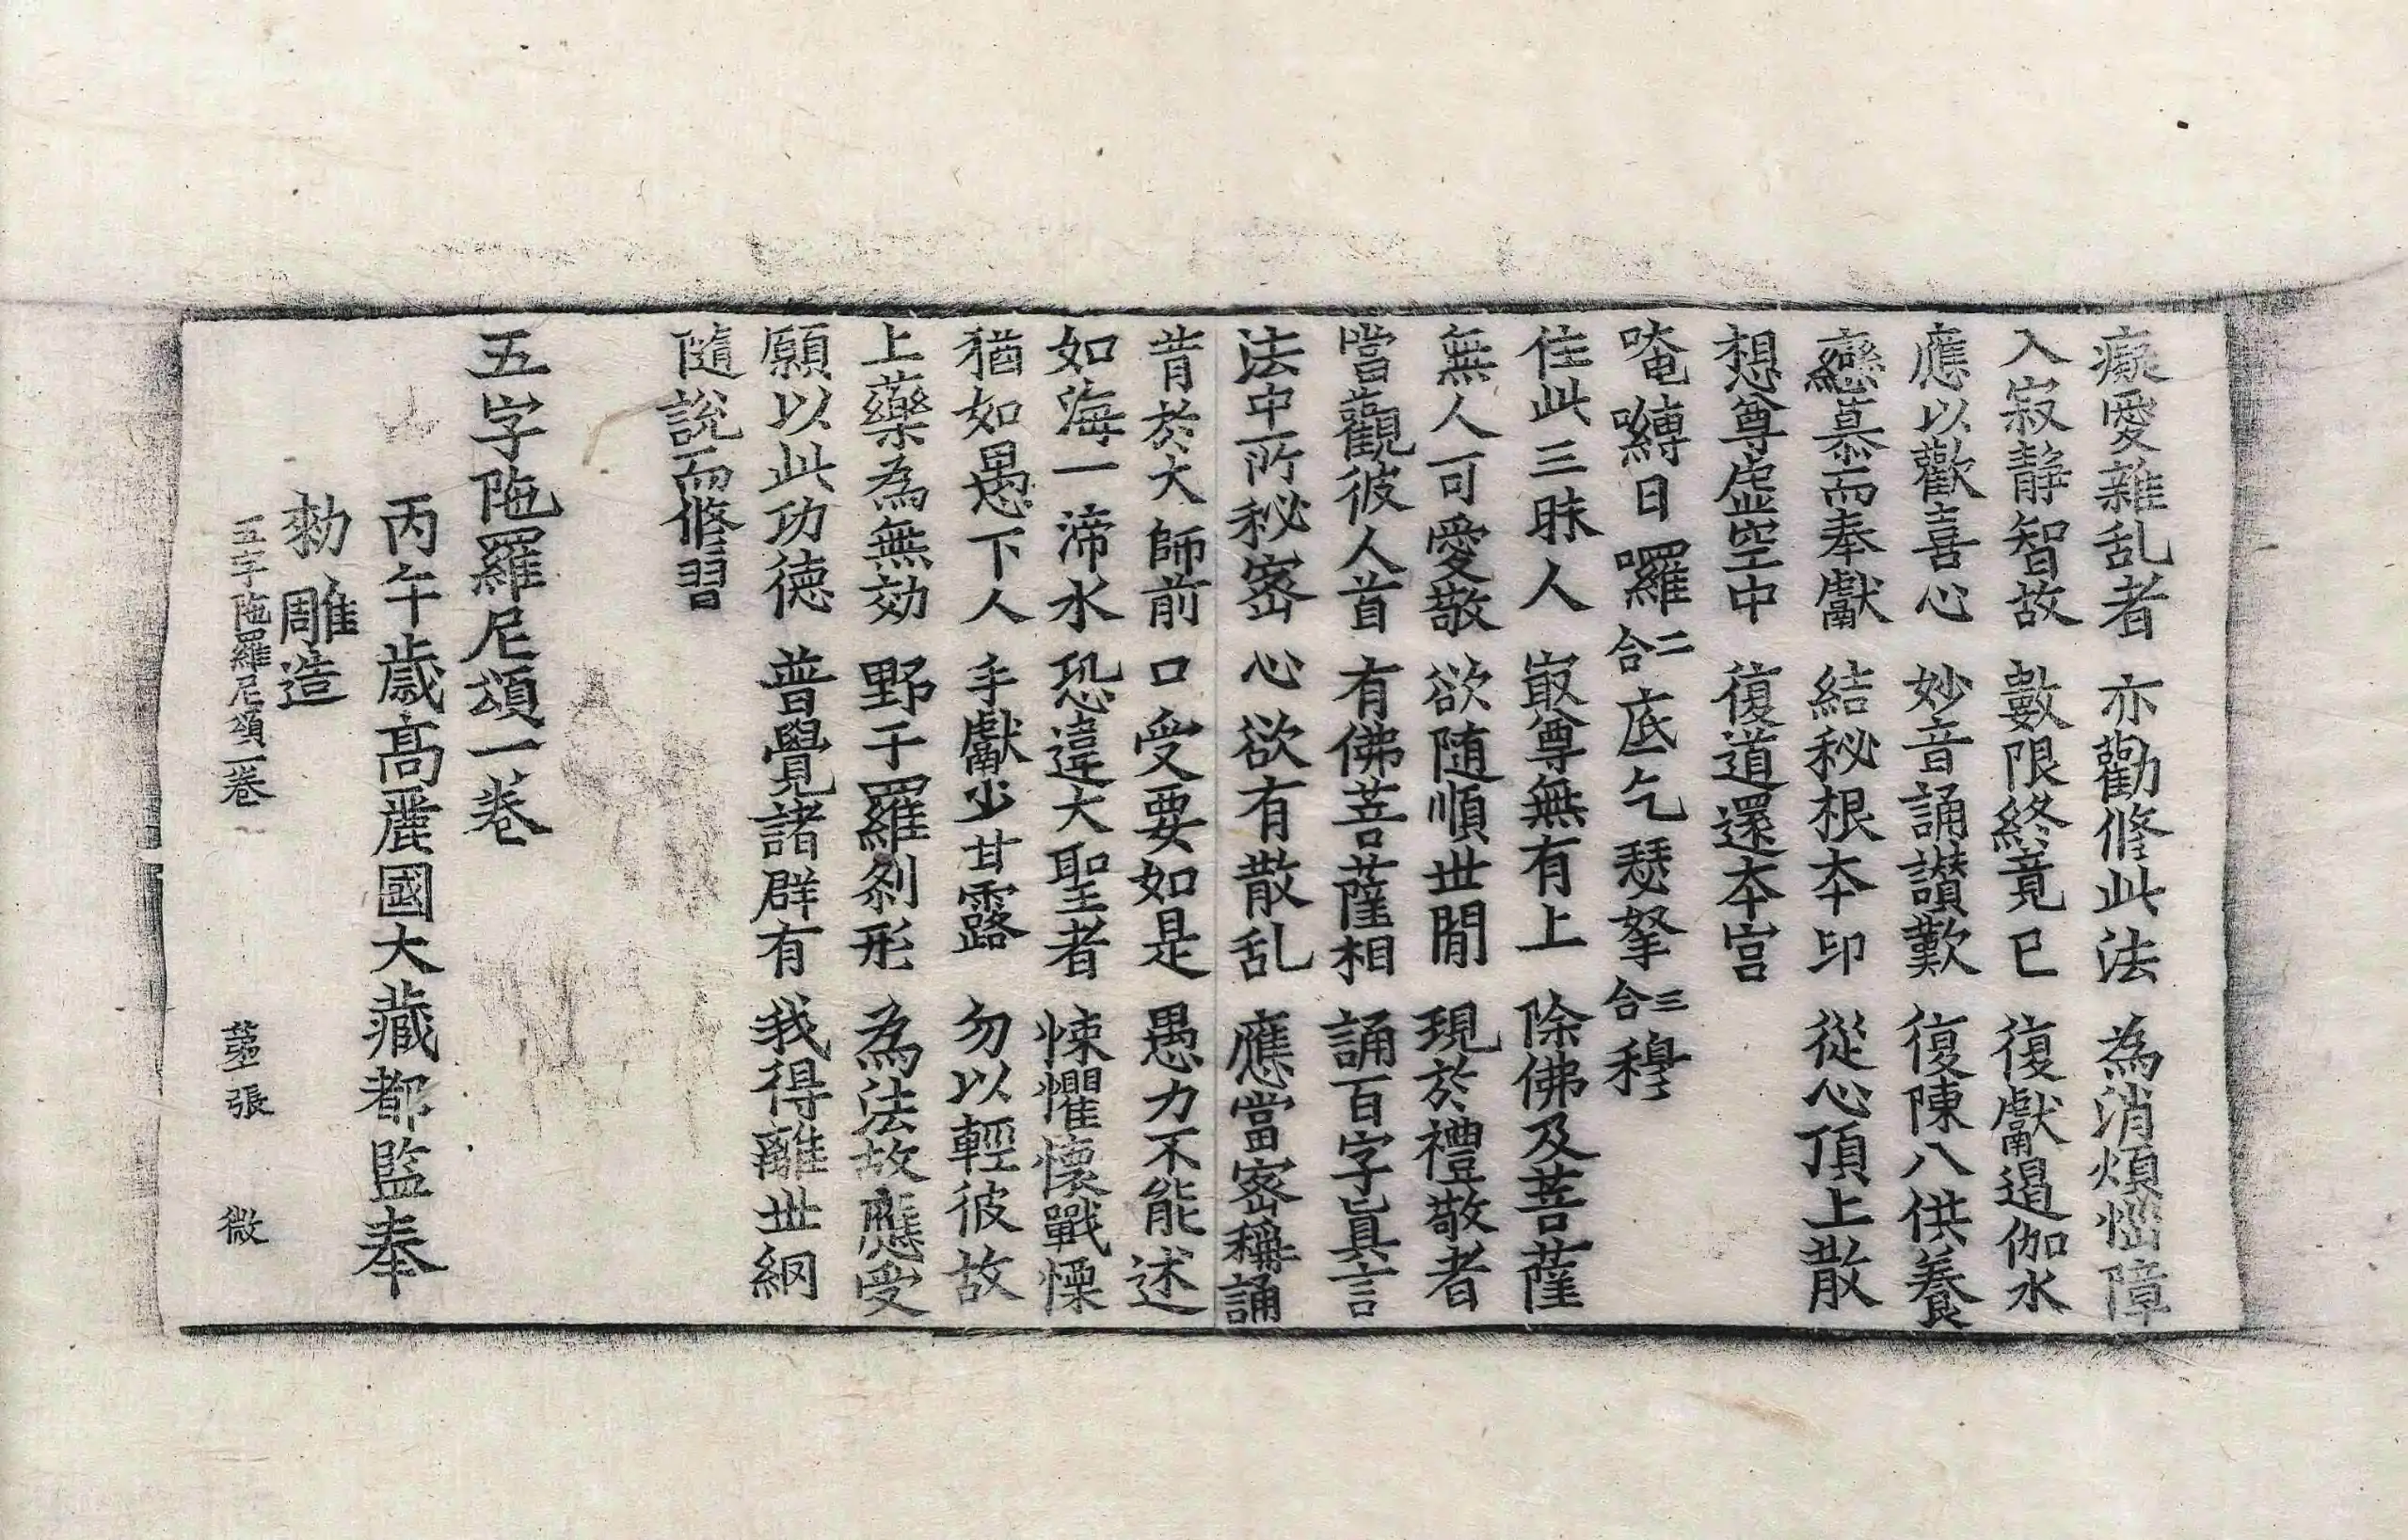 癡愛雜乱者 亦勸修此法 為消煩惱障
入寂静智故 數限終竟已 復獻遏伽水
應以歡喜心 妙音誦讃歎 復陳八供養
戀慕而奉獻 結秘根本印 從心頂上散
想尊虛空中 復道還本宮
唵嚩日囉二合底乞瑟拏三合穆
住此三昧人 㝡尊無有上 除佛及菩薩
無人可愛敬 欲随順世閒 現於禮敬者
當觀彼人首 有佛菩薩相 誦百字真言
法中所秘密 心欲有散乱 應當密稱誦
昔於大師前 口受要如是 愚力不能述
如海一渧水 恐違大聖者 悚懼懷戰慄
猶如愚下人 手獻少甘露 勿以輕彼故
上藥為無効 野干羅刹形 為法故應受
願以此功德 普覺諸群有 我得離世網
隨說而修習
五字陁羅尼頌一卷
丙午歲高麗國大藏都監奉
勑雕造
五字陁羅尼頌一卷 張 微